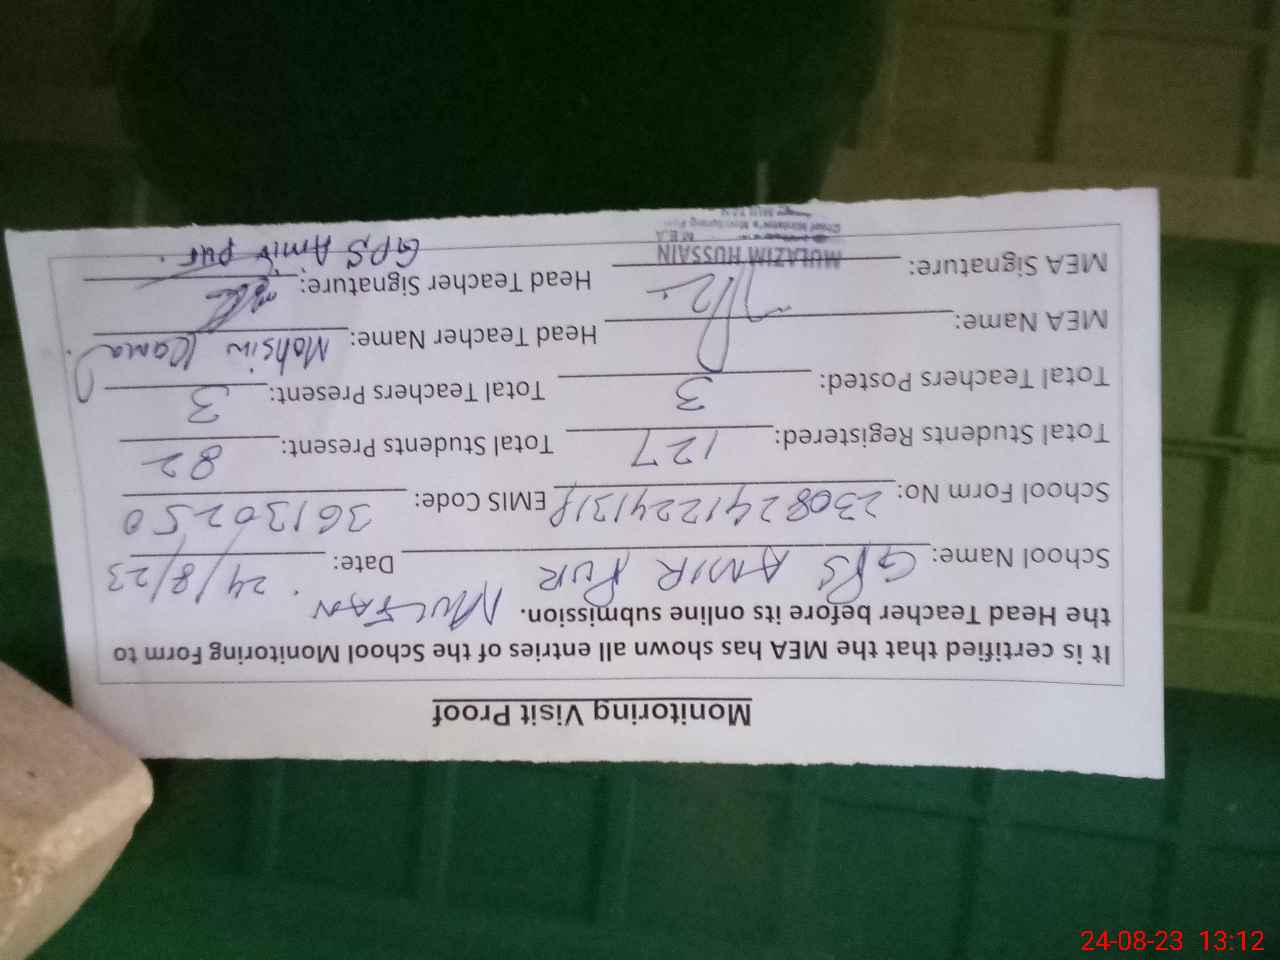 Monitoring Visit Proof
It is certified that the MEA has shown all entries of the School Monitoring Form to
the Head Teacher before its online submission. MULTAN
School Name: GPS AMIR PUR Date: 24/8/23
School Form No: EMIS Code: 36130250
Total Students Registered: 127 Total Students Present: 82
Total Teachers Posted: 3 Total Teachers Present: 3
MEA Name: Head Teacher Name: Mohsin Kamal
MEA Signature: Head Teacher Signature:
MULAZIM HUSSAIN GPS Amir pur.
M.E.A
24-08-23 13:12